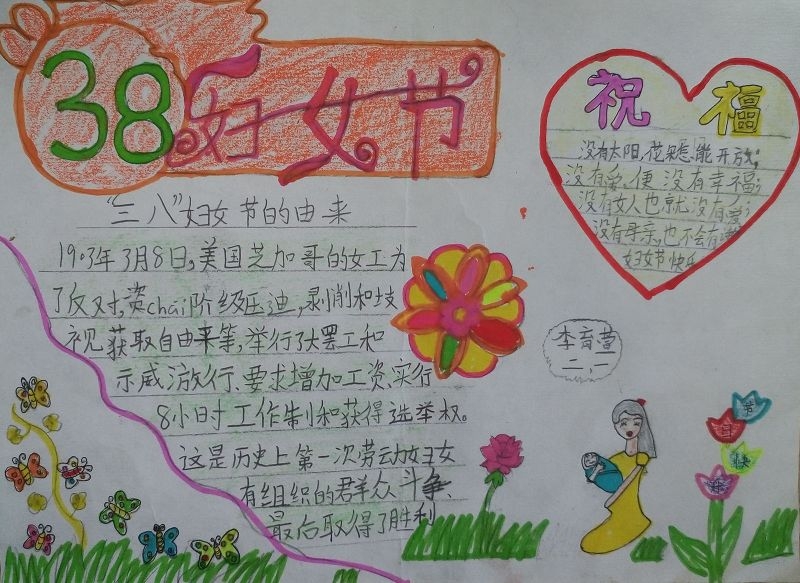 38妇女节
"三八"妇女节的由来
1903年3月8日,美国芝加哥的女工为
了反对,资chǎi阶级压迪,剥削和歧
视,获取自由来等,举行了大罢工和
示威游行、要求增加工资、实行
8小时工作制和获得选举权。
这是历史上第一次劳动妇女
有组织的君羊众斗争、
最后取得了胜利
祝福
没有太阳,花朵怎能开放;
没有爱、便没有幸福;
没有女人也就没有爱;
没有母亲,也不会有
妇女节快乐
李育萱
二、二
节
日
快